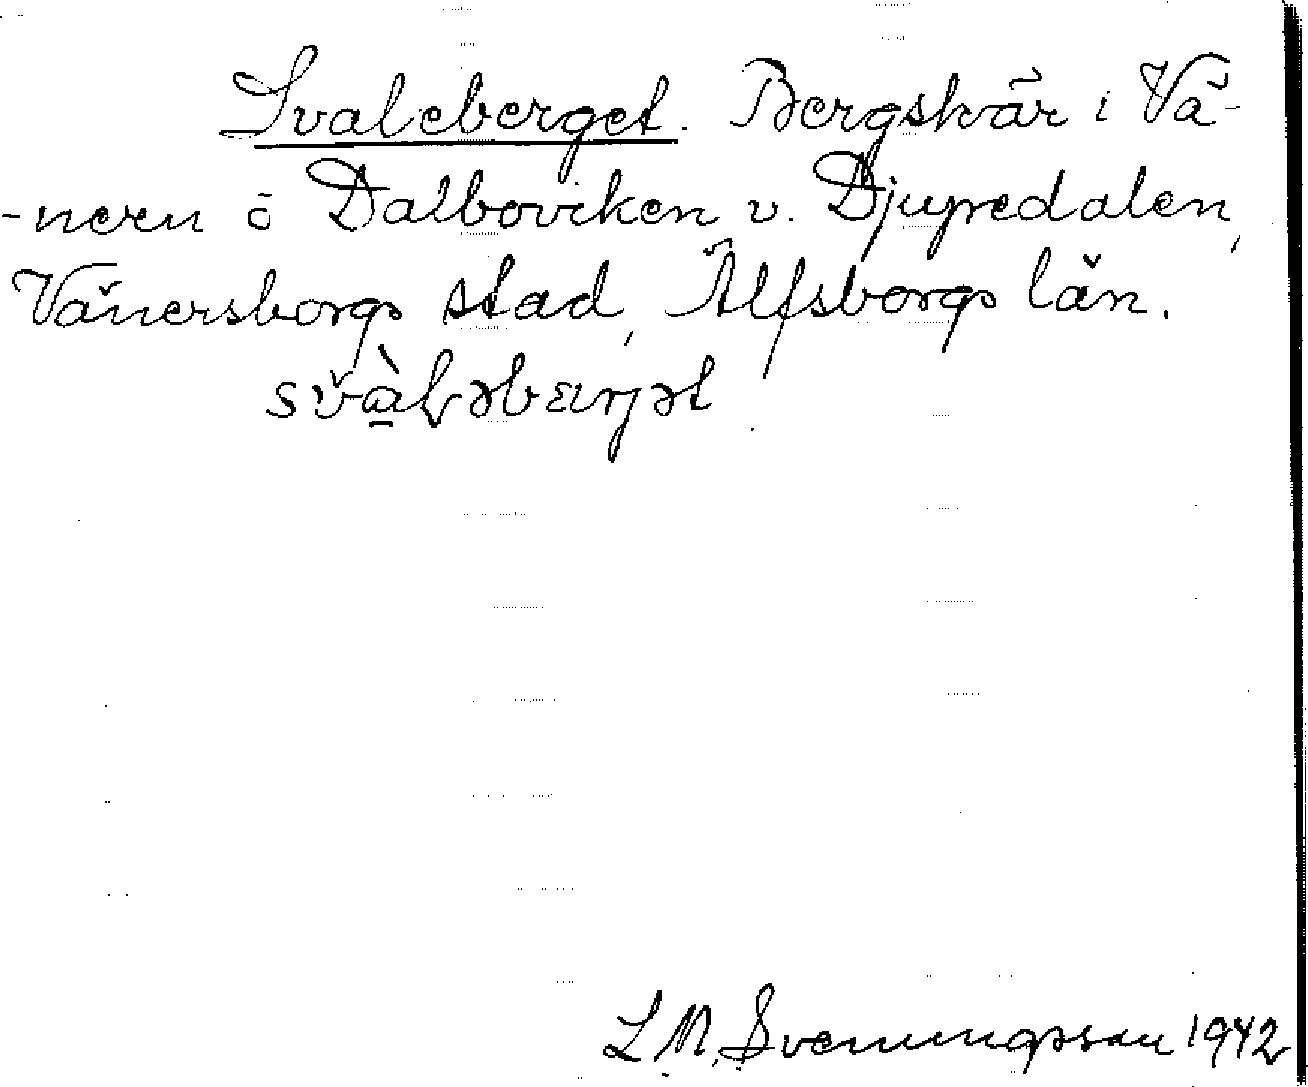 Svaleberget. Bergskär i Vä-
-nern ö Dalboviken v. Djupedalen,
Vänersborgs stad, Älfsborgs län.
L.M. Svenungsson 1942